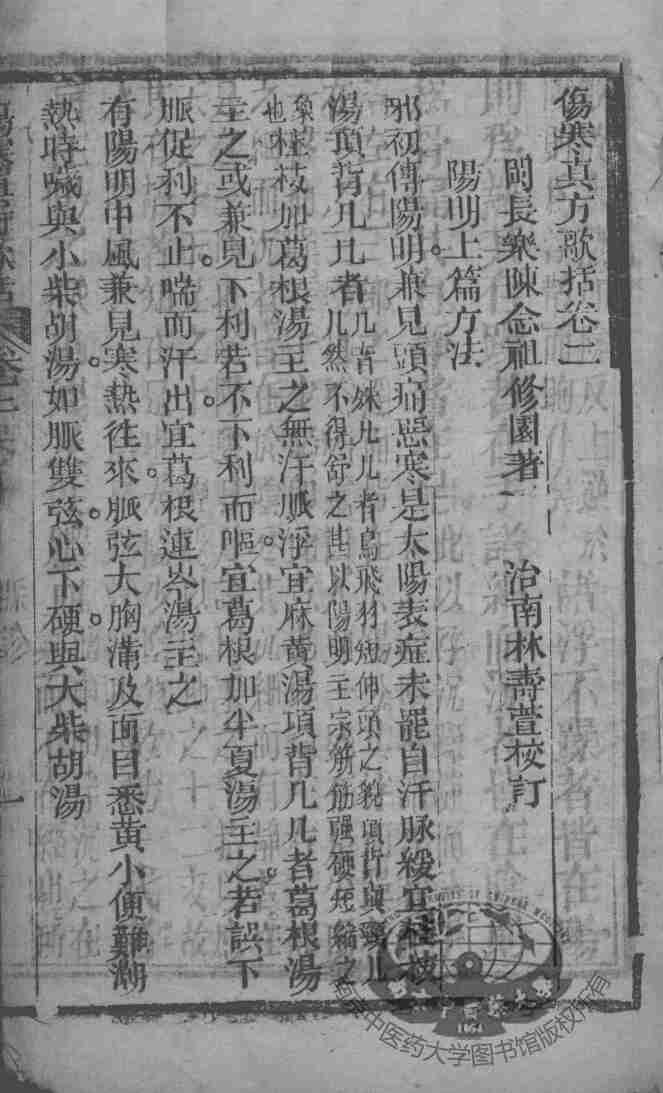 傷寒真方歌括卷二
閩長樂陳念祖修園著 治南林壽萱校訂
陽明上篇方法
邪初傳陽明兼見頭痛惡寒是太陽表症未罷自汗脉緩宜桂枝
湯項背几几者几音殊几几者鳥飛羽短伸頭之貌項背與頸几几然不得舒之甚以陽明主宗筋筋强硬短縮之
象也桂枝加葛根湯主之無汗脈浮宜麻黃湯項背几几者葛根湯
主之或兼見下利若不下利而嘔宜葛根加半夏湯主之若誤下
脈促利不止喘而汗出宜葛根連芩湯主之
有陽明中風兼見寒熱往來脈弦大胸滿及面目悉黃小便難潮
熱時噦與小柴胡湯如脈雙弦心下硬與大柴胡湯
南京中医药大学图书馆版权所有